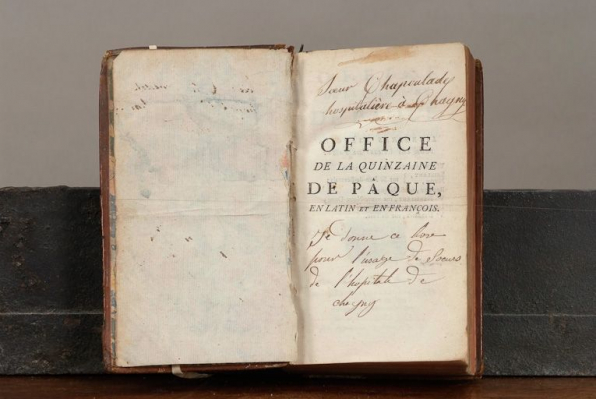 Sœur Chapoulady
hospitalière à Chagny
OFFICE
DE LA QUINZAINE
DE PÂQUE,
EN LATIN ET EN FRANÇOIS.
Je donne ce livre
pour l'usage de
de l'hopital de
chagny